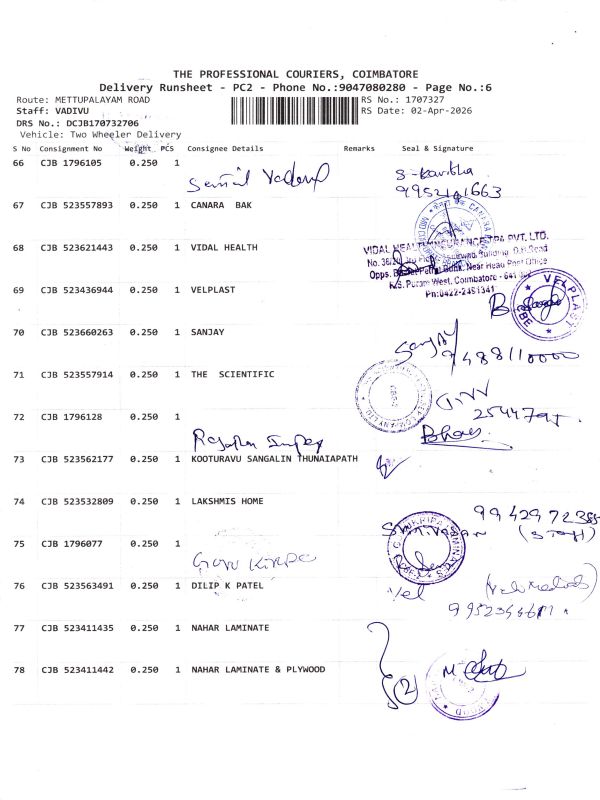 THE PROFESSIONAL COURIERS, COIMBATORE
Delivery Runsheet - PC2 - Phone No.:9047080280 - Page No.:6
Route: METTUPALAYAM ROAD RS No.: 1707327
Staff: VADIVU RS Date: 02-Apr-2026
DRS No.: DCJB170732706
Vehicle: Two Wheeler Delivery
S No Consignment No Weight PCS Consignee Details Remarks Seal & Signature
66 CJB 1796105 0.250 1
S-Kavitha
67 CJB 523557893 0.250 1 CANARA BAK
68 CJB 523621443 0.250 1 VIDAL HEALTH
VIDAL HEALTH INSURANCE TPA PVT. LTD.
Near Head Post Office
R.S. Puram West, Coimbatore - 641
Ph:0422-2491341
69 CJB 523436944 0.250 1 VELPLAST
VELPLAST
70 CJB 523660263 0.250 1 SANJAY
Sanjay
9488110000
71 CJB 523557914 0.250 1 THE SCIENTIFIC
72 CJB 1796128 0.250 1
73 CJB 523562177 0.250 1 KOOTURAVU SANGALIN THUNAIAPATH
74 CJB 523532809 0.250 1 LAKSHMIS HOME
75 CJB 1796077 0.250 1
76 CJB 523563491 0.250 1 DILIP K PATEL
Vel
77 CJB 523411435 0.250 1 NAHAR LAMINATE
78 CJB 523411442 0.250 1 NAHAR LAMINATE & PLYWOOD
2